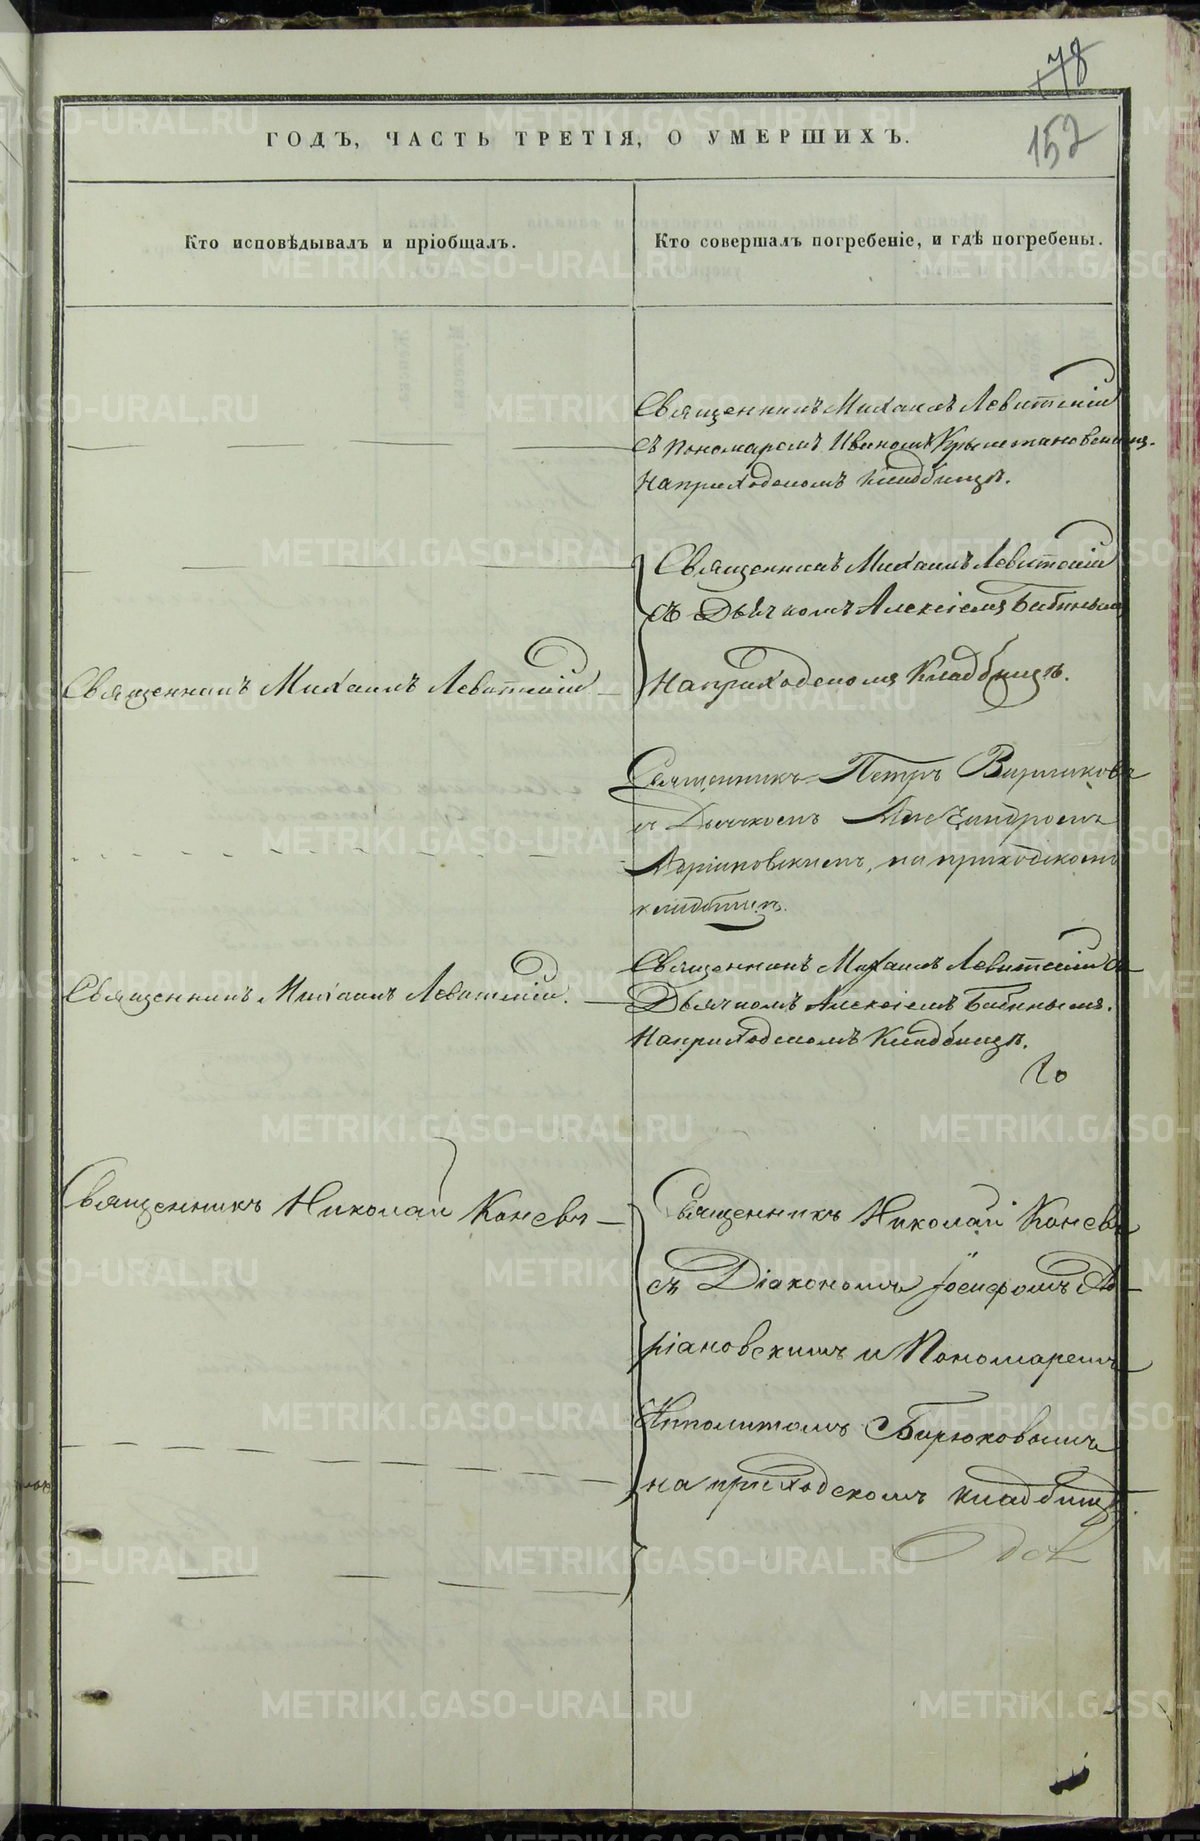 78
152
ГОДЪ, ЧАСТЬ ТРЕТІЯ, О УМЕРШИХЪ.
Кто исповѣдывалъ и пріобщалъ.
Кто совершалъ погребеніе, и гдѣ погребены.
Священникъ Михаилъ Левитскій
съ Пономаремъ Иваномъ
На приходскомъ кладбищѣ.
Священникъ Михаилъ Левитскій
съ Дьячкомъ Алексіемъ Бабинымъ
Священникъ Михаилъ Левитскій
На приходскомъ Кладбищѣ.
Священникъ Петръ
съ Дьячкомъ Александромъ
Адріановскимъ, на приходскомъ
кладбищѣ.
Священникъ Михаилъ Левитскій съ
Священникъ Михаилъ Левитскій.
Дьячкомъ Алексіемъ Бабинымъ.
На приходскомъ Кладбищѣ.
Священникъ Николай Коневъ
Священникъ Николай Коневъ
съ Діакономъ Іосифомъ Ад
ріановскимъ и Пономаремъ
Ипполитомъ Бирюковымъ
на приходскомъ кладбищѣ.
METRIKI.GASO-URAL.RU